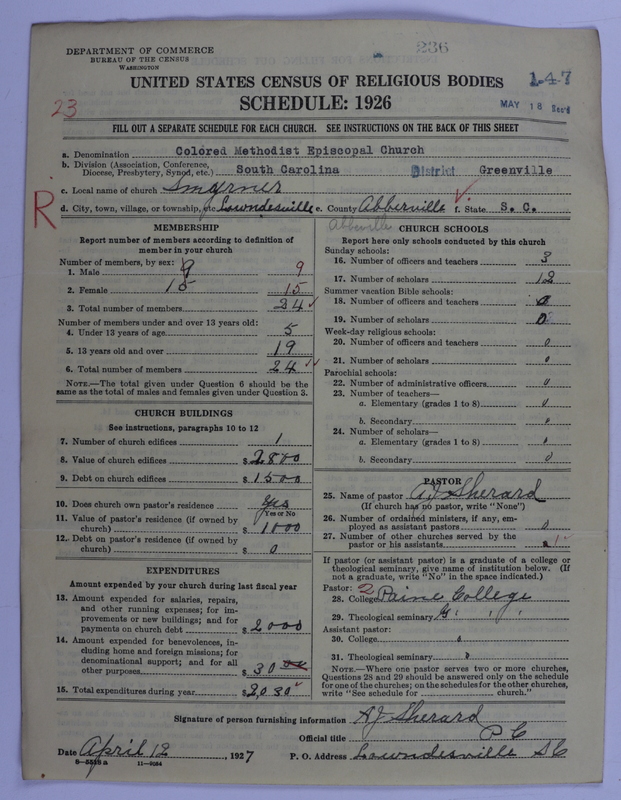 236
DEPARTMENT OF COMMERCE
BUREAU OF THE CENSUS
WASHINGTON
147
UNITED STATES CENSUS OF RELIGIOUS BODIES
SCHEDULE: 1926
23
MAY 18 Rec'd
FILL OUT A SEPARATE SCHEDULE FOR EACH CHURCH. SEE INSTRUCTIONS ON THE BACK OF THIS SHEET
a. Denomination Colored Methodist Episcopal Church
b. Division (Association, Conference, Diocese, Presbytery, Synod, etc.) South Carolina District Greenville
c. Local name of church Smyrner
R
d. City, town, village, or township, etc. Lowndesville e. County Abberville f. State S. C.
Abbeville
MEMBERSHIP
Report number of members according to definition of
member in your church
Number of members, by sex:
1. Male 9 9
2. Female 15 15
3. Total number of members 24
Number of members under and over 13 years old:
4. Under 13 years of age 5
5. 13 years old and over 19
6. Total number of members 24
NOTE.—The total given under Question 6 should be the
same as the total of males and females given under Question 3.
CHURCH BUILDINGS
See instructions, paragraphs 10 to 12
7. Number of church edifices 1
8. Value of church edifices $2800
9. Debt on church edifices $1500
10. Does church own pastor's residence Yes
Yes or No
11. Value of pastor's residence (if owned by
church) $1000
12. Debt on pastor's residence (if owned by
church) $0
EXPENDITURES
Amount expended by your church during last fiscal year
13. Amount expended for salaries, repairs,
and other running expenses; for im-
provements or new buildings; and for
payments on church debt $2000
14. Amount expended for benevolences, in-
cluding home and foreign missions; for
denominational support; and for all
other purposes $30 00
15. Total expenditures during year $2030
CHURCH SCHOOLS
Report here only schools conducted by this church
Sunday schools:
16. Number of officers and teachers 3
17. Number of scholars 12
Summer vacation Bible schools:
18. Number of officers and teachers 0
19. Number of scholars 0
Week-day religious schools:
20. Number of officers and teachers 0
21. Number of scholars 0
Parochial schools:
22. Number of administrative officers 0
23. Number of teachers—
a. Elementary (grades 1 to 8) 0
b. Secondary 0
24. Number of scholars—
a. Elementary (grades 1 to 8) 0
b. Secondary 0
PASTOR
25. Name of pastor AJ Sherard
(If church has no pastor, write "None")
26. Number of ordained ministers, if any, em-
ployed as assistant pastors 0
27. Number of other churches served by the
pastor or his assistants 1
If pastor (or assistant pastor) is a graduate of a college or
theological seminary, give name of institution below. (If
not a graduate, write "No" in the space indicated.)
Pastor: 2
28. College Paine College
29. Theological seminary
Assistant pastor:
30. College 0
31. Theological seminary 0
NOTE.—Where one pastor serves two or more churches,
Questions 28 and 29 should be answered only on the schedule
for one of the churches; on the schedules for the other churches,
write "See schedule for church."
Signature of person furnishing information AJ Sherard
Official title P C
Date April 12, 1927 P. O. Address Lowndesville S C
8-5518a 11-9034